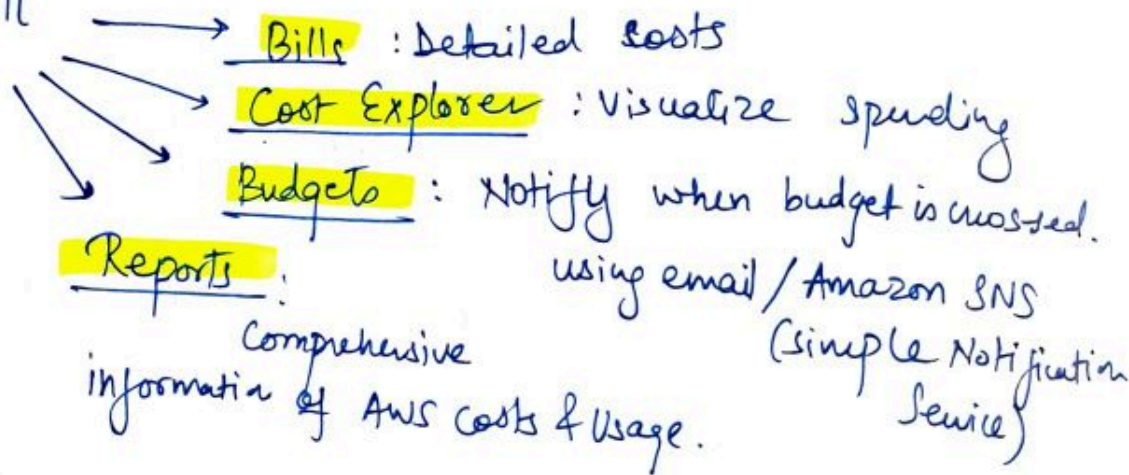 Bills : Detailed costs
Cost Explorer : Visualize spending
Budgets : Notify when budget is crossed.
using email / Amazon SNS
(simple Notification
Service)
Reports :
Comprehensive
information of AWS Costs & Usage.